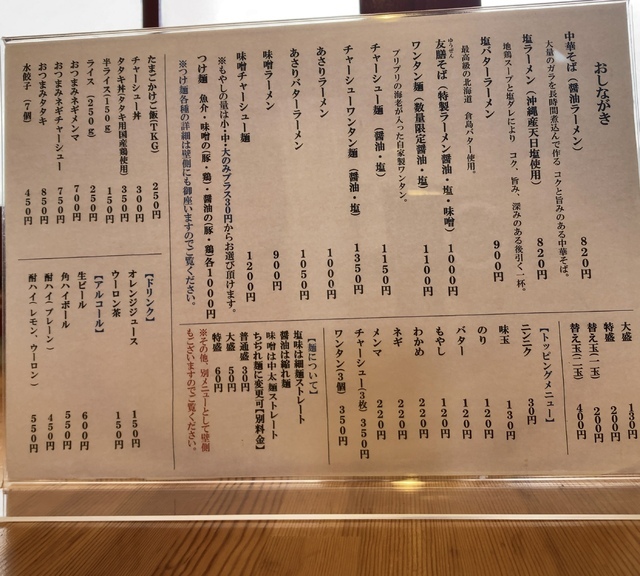 おしながき
中華そば（醤油ラーメン） 820円
大量のガラを長時間煮込んで作る コクと旨みのある中華そば。
塩ラーメン（沖縄産天日塩使用） 820円
地鶏スープと塩ダレにより コク、旨み、深みのある後引く一杯。
塩バターラーメン 900円
最高級の北海道 倉島バター使用。
友膳そば（特製ラーメン醤油・塩・味噌） 1000円
ゆうぜん
ワンタン麺（数量限定醤油・塩） 1100円
プリプリの海老が入った自家製ワンタン。
チャーシュー麺（醤油・塩） 1150円
チャーシューワンタン麺（醤油・塩） 1350円
あさりラーメン 1000円
あさりバターラーメン 1050円
味噌ラーメン 900円
味噌チャーシュー麺 1200円
※もやしの量は小・中・大のみプラス30円からお選び頂けます。
つけ麺 魚介・味噌の（豚・鶏）・醤油の（豚・鶏）各1000円
※つけ麺各種の詳細は壁側にも御座いますのでご覧ください。
たまごかけご飯（TKG） 250円
チャーシュー丼 300円
タタキ丼（タタキ用国産鶏使用） 350円
半ライス（150g） 150円
ライス（250g） 250円
おつまみネギメンマ 700円
おつまみネギチャーシュー 750円
おつまみタタキ 850円
水餃子（7個） 450円
大盛 130円
特盛 200円
替え玉（一玉） 200円
替え玉（二玉） 400円
【トッピングメニュー】
ニンニク 30円
味玉 130円
のり 120円
バター 120円
もやし 120円
わかめ 220円
ネギ 220円
メンマ 220円
チャーシュー（3枚） 350円
ワンタン（3個） 350円
【麺について】
塩味は細麺ストレート
醤油は縮れ麺
味噌は中太麺ストレート
ちぢれ麺に変更可【別料金】
普通盛 30円
大盛 50円
特盛 60円
※その他、別メニューとして壁側
もございますのでご覧ください。
【ドリンク】
オレンジジュース 150円
ウーロン茶 150円
【アルコール】
生ビール 600円
角ハイボール 550円
酎ハイ（プレーン） 450円
酎ハイ（レモン、ウーロン） 550円